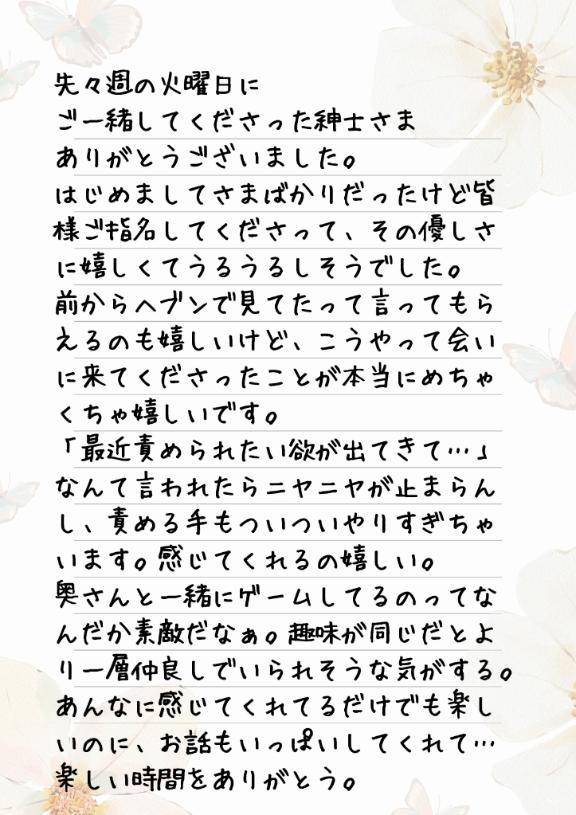 先々週の火曜日に
ご一緒してくださった紳士さま
ありがとうございました。
はじめましてさまばかりだったけど皆
様ご指名してくださって、その優しさ
に嬉しくてうるうるしそうでした。
前からヘブンで見てたって言ってもら
えるのも嬉しいけど、こうやって会い
に来てくださったことが本当にめちゃ
くちゃ嬉しいです。
「最近責められたい欲が出てきて…」
なんて言われたらニヤニヤが止まらん
し、責める手もついついやりすぎちゃ
います。感じてくれるの嬉しい。
奥さんと一緒にゲームしてるのってな
んだか素敵だなぁ。趣味が同じだとよ
り一層仲良しでいられそうな気がする。
あんなに感じてくれてるだけでも楽し
いのに、お話もいっぱいしてくれて…
楽しい時間をありがとう。